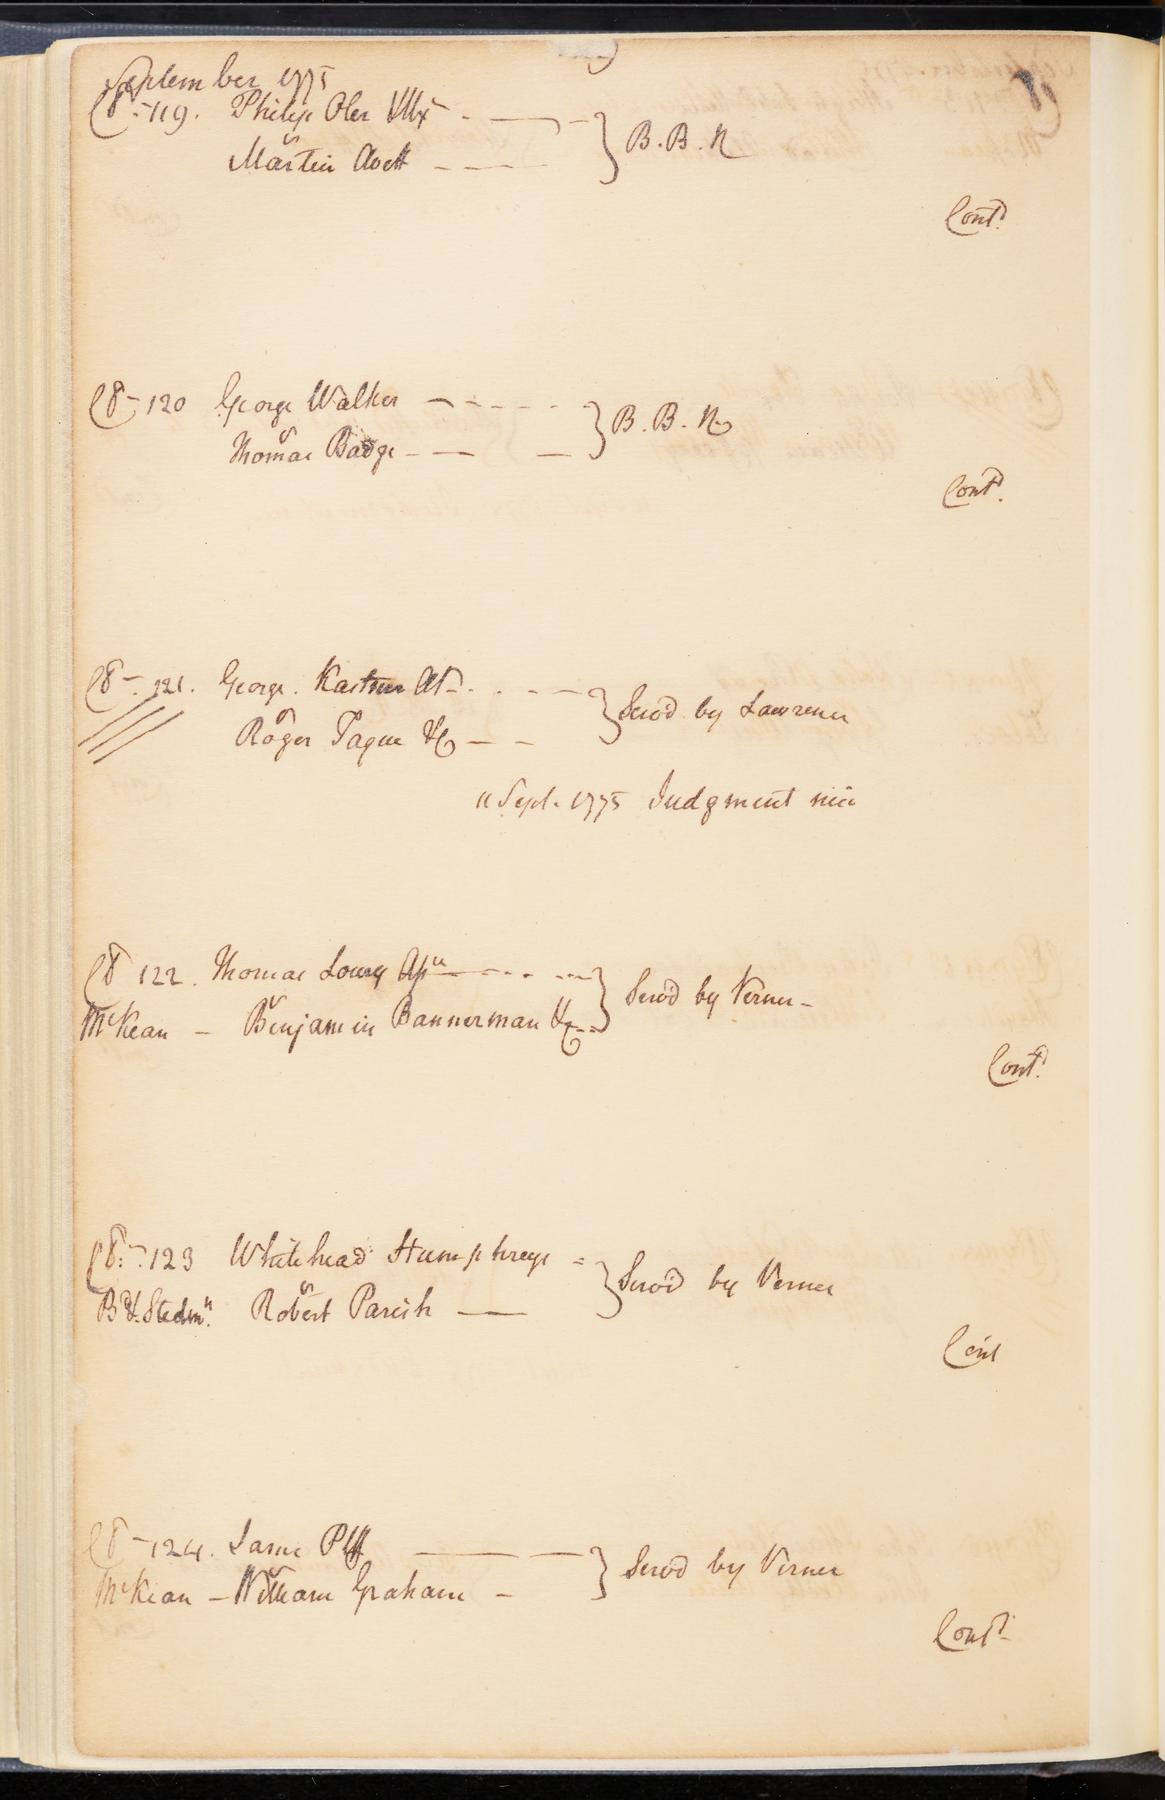 September 1775
119. Philip Oler
vs
Martin } B. B. N
Contd.
120 George Walker
vs
Thomas Badge } B. B. No
Contd.
121. George. Kastner
vs
Roger Tague &c } Servd by Lawrence
11 Sept. 1775 Judgment nisi
122. Thomas Lowry
vs
McKean - Benjamin Bannerman &c } Servd by Verner -
Contd.
123 Whitehead Humphreys
vs
Stedmn. Robert Parish } Servd by Verner
Cont
124. Same Plff
vs
McKean - William Graham - } Servd by Verner
Contd.